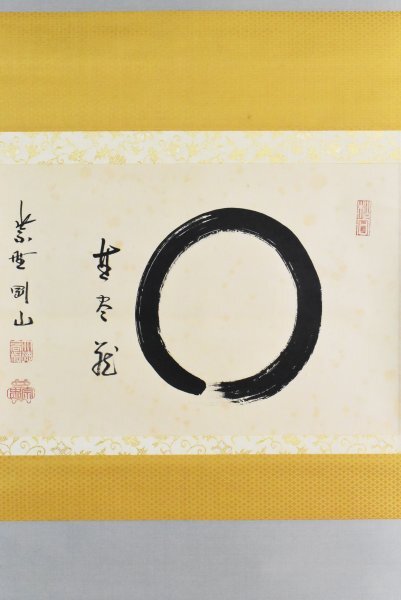 無尽蔵
紫野剛山